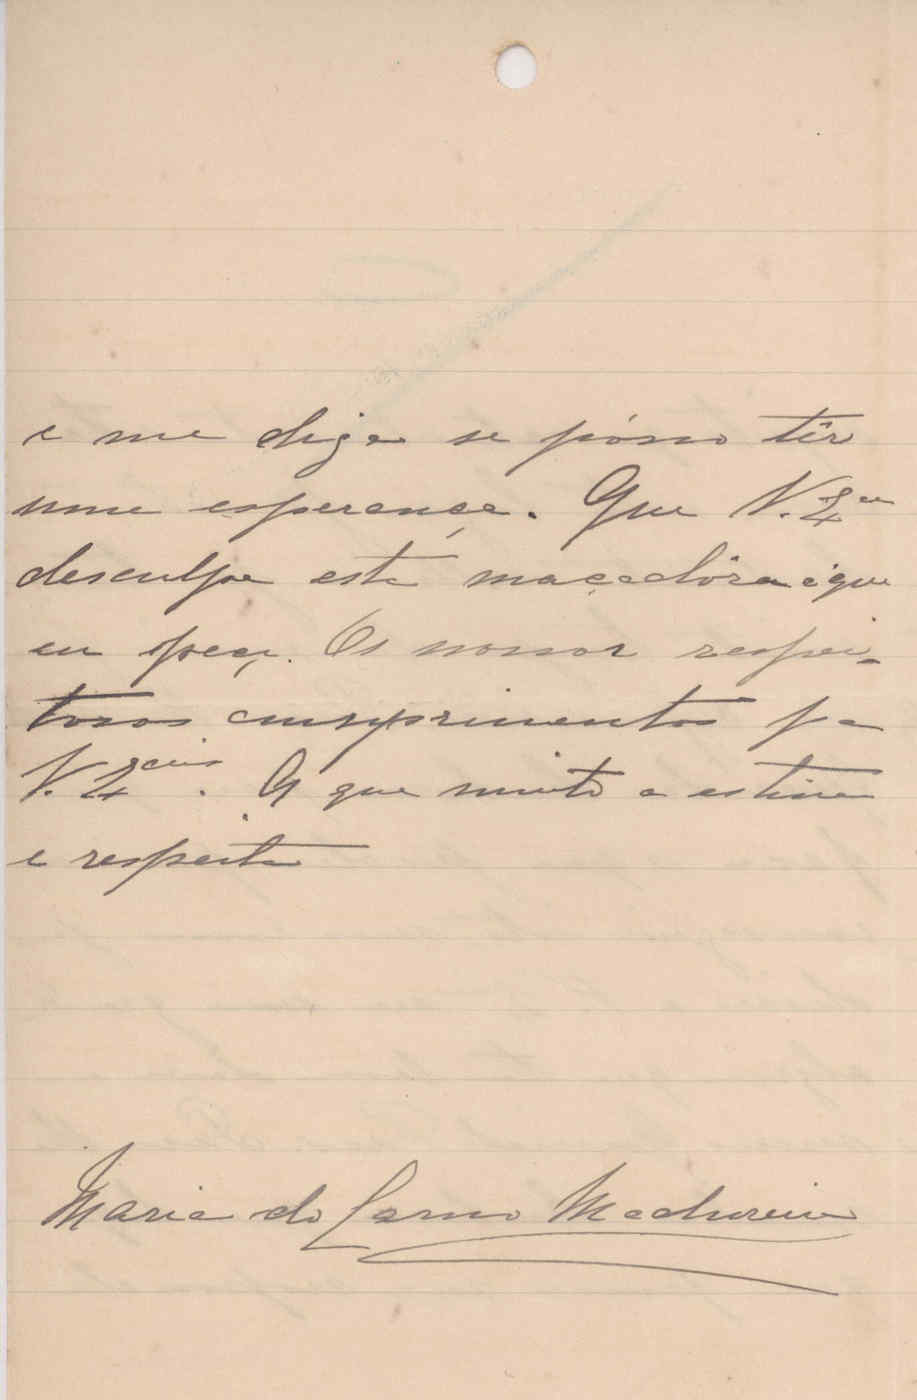 e me diga se pósso têr
uma esperança. Que V. Exa
desculpe esta maçadôra é que
eu peço. Os nossos respei-
tosos cumprimentos pa
V. Excias. A que muito a estima
e respeita
Maria do Carmo Madureira